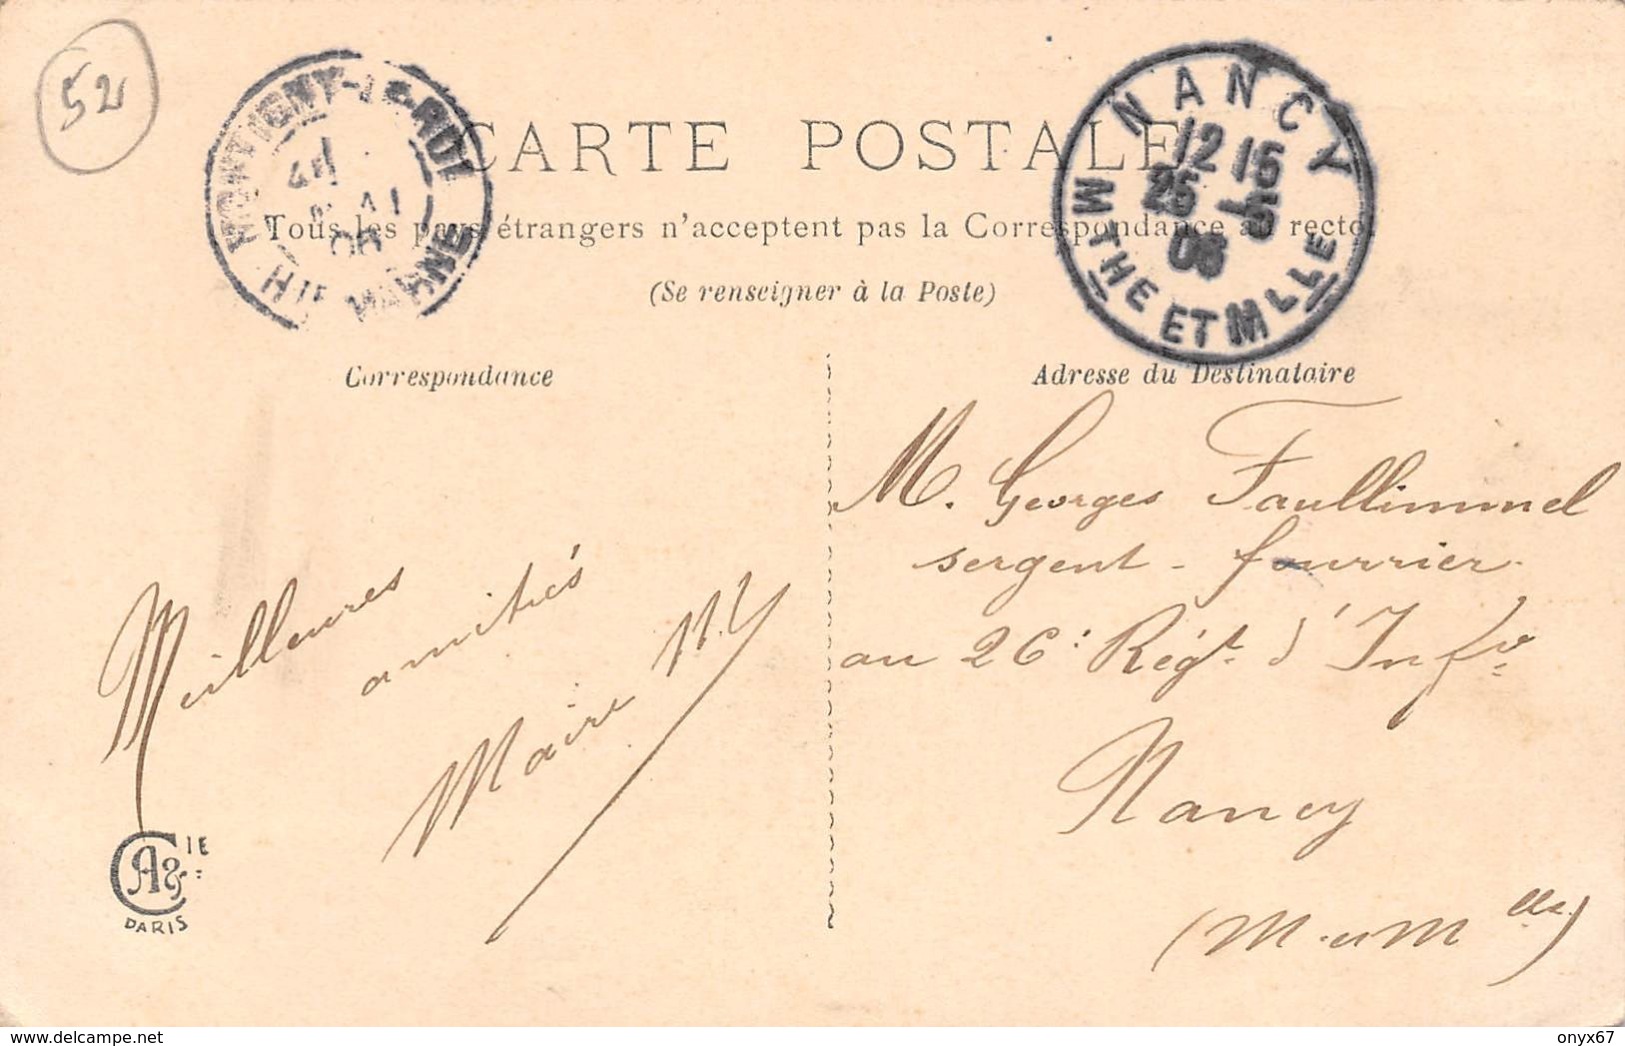 52
CARTE POSTALE
Tous les pays étrangers n'acceptent pas la Correspondance au recto.
(Se renseigner à la Poste)
NANCY
12 15
25 -5
06
MTHE ET MLLE
Correspondance
Adresse du Destinataire
M. Georges Faullimmel
sergent-fourrier
au 26e Régt d'Infie
Nancy
(M. et Mlle)
Meilleures
amitiés
Maire
CIE
A &
PARIS
Website : http://www.delcampe.net
User : onyx67